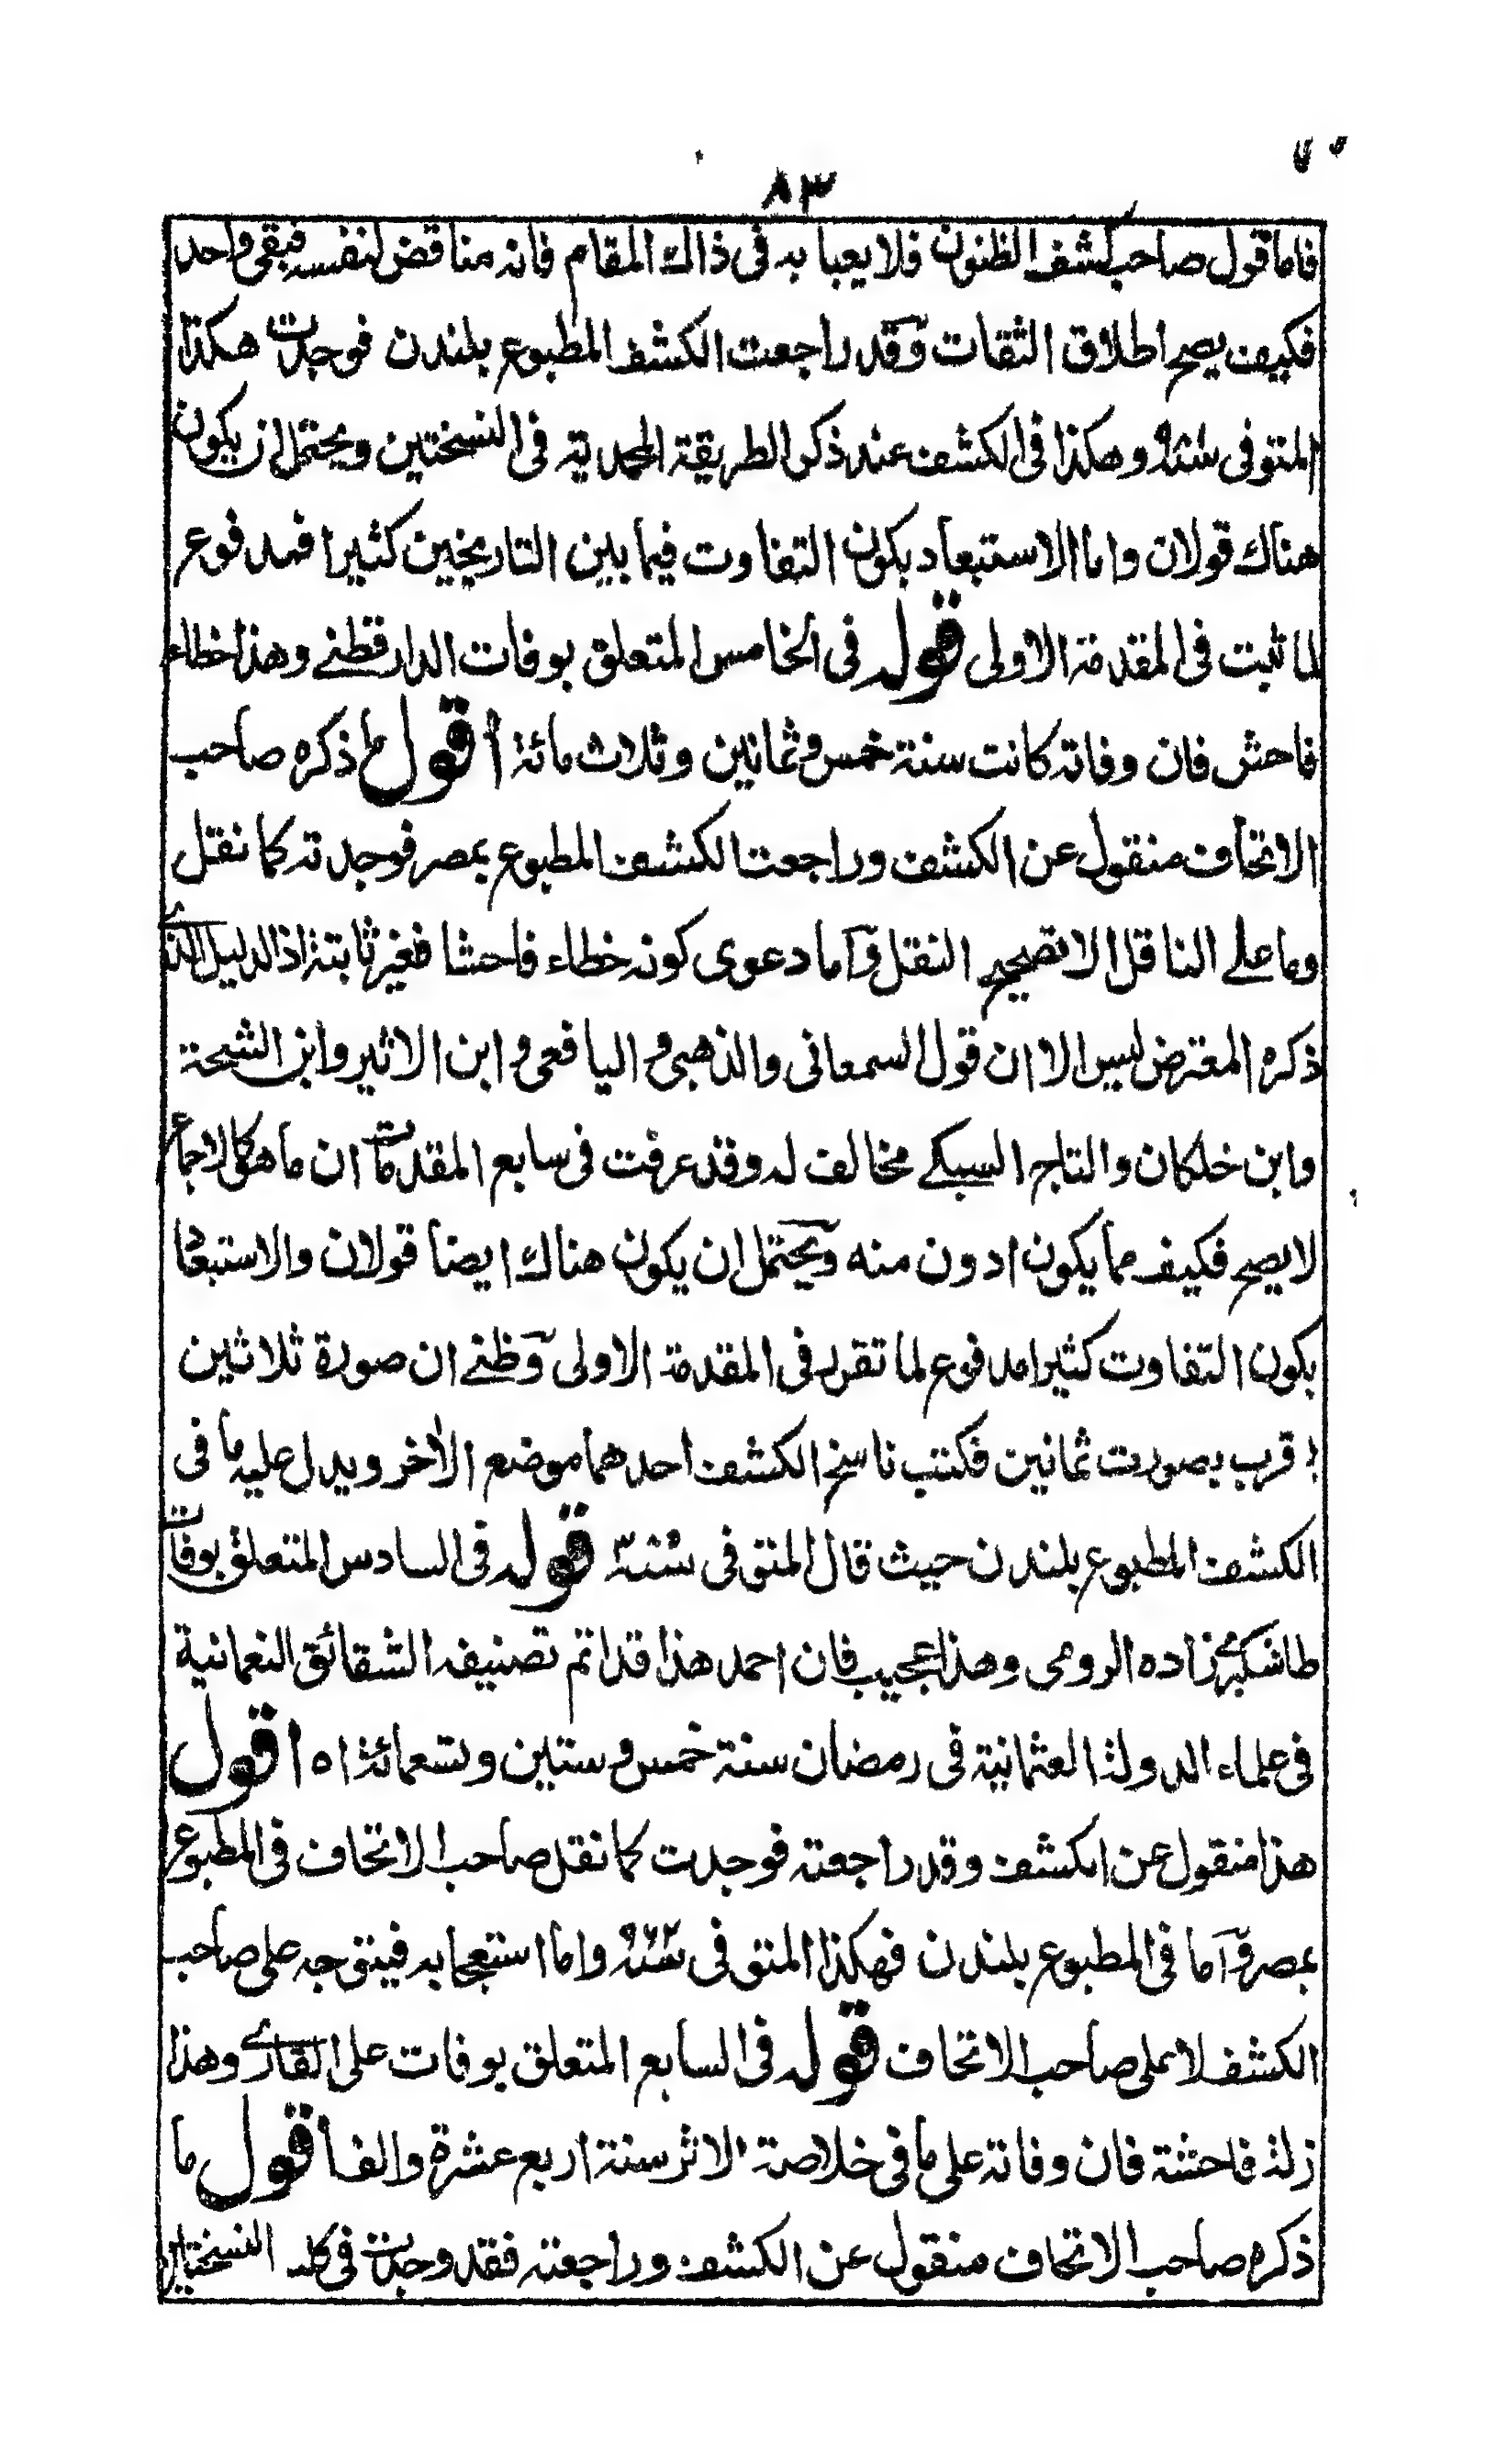 ٨٣
فاما قول صاحب كشف الظنون فلا يعبا به فى ذاك المقام فانه مناقض لنفسه فبقى واحد
فكيف يصح اطلاق الثقات وقد راجعت الكشف المطبوع بلندن فوجدت هكذا
المتوفى وهكذا فى الكشف عند ذكر الطريقة المحمدية فى النسختين ويحتمل ان يكون
هناك قولان واما الاستبعاد بكون التفاوت فيما بين التاريخين كثيرا فمدفوع
لما ثبت فى المقدمة الاولى قوله فى الخامس المتعلق بوفات الدارقطنے وهذا خطاء
فاحش فان وفاته كانت سنة خمس وثمانين وثلاث مائة اقول ما ذكره صاحب
الاتحاف منقول عن الكشف وراجعت الكشف المطبوع بمصر فوجدته كما نقل
وما علے الناقل الا تصحيح النقل وآما دعوى كونه خطاء فاحشا فغير ثابتة اذ الدليل الذے
ذكره المعترض ليس الا ان قول السمعانى والذهبى واليافعى وابن الاثير وابن الشحنة
وابن خلكان والتاج السبكے مخالف له وقد عرفت فى سابع المقدمات ان ما هو كالاجماع
لا يصح فكيف مما يكون ادون منه ويحتمل ان يكون هناك ايضا قولان والاستبعاد
بكون التفاوت كثيرا مدفوع لما تقرر فى المقدمة الاولى وظنے ان صورة ثلاثين
اقرب بصورت ثمانين فكتب ناسخ الكشف احدهما موضع الاٰخر ويدل عليه ما فى
الكشف المطبوع بلندن حيث قال المتوفى قوله فى السادس المتعلق بوفات
طاشكبرے زاده الرومى وهذا عجيب فان احمد هذا قد اتم تصنيفه الشقائق النعمانية
فى علماء الدولة العثمانية فى رمضان سنة خمس وستين وتسعمائة اه اقول
هذا منقول عن الكشف وقد راجعته فوجدت كما نقل صاحب الاتحاف فى المطبوع
بمصر وآما فى المطبوع بلندن فهكذا المتوفى سنة ٩٦٢ واما استعجابه فيتوجه على صاحب
الكشف لا على صاحب الاتحاف قوله فى السابع المتعلق بوفات على القارے وهذا
زلة فاحشة فان وفاته على ما فى خلاصة الاثر سنة اربع عشرة والف اقول ما
ذكره صاحب الاتحاف منقول عن الكشف وراجعته فقد وجدت فى كلا النسختين